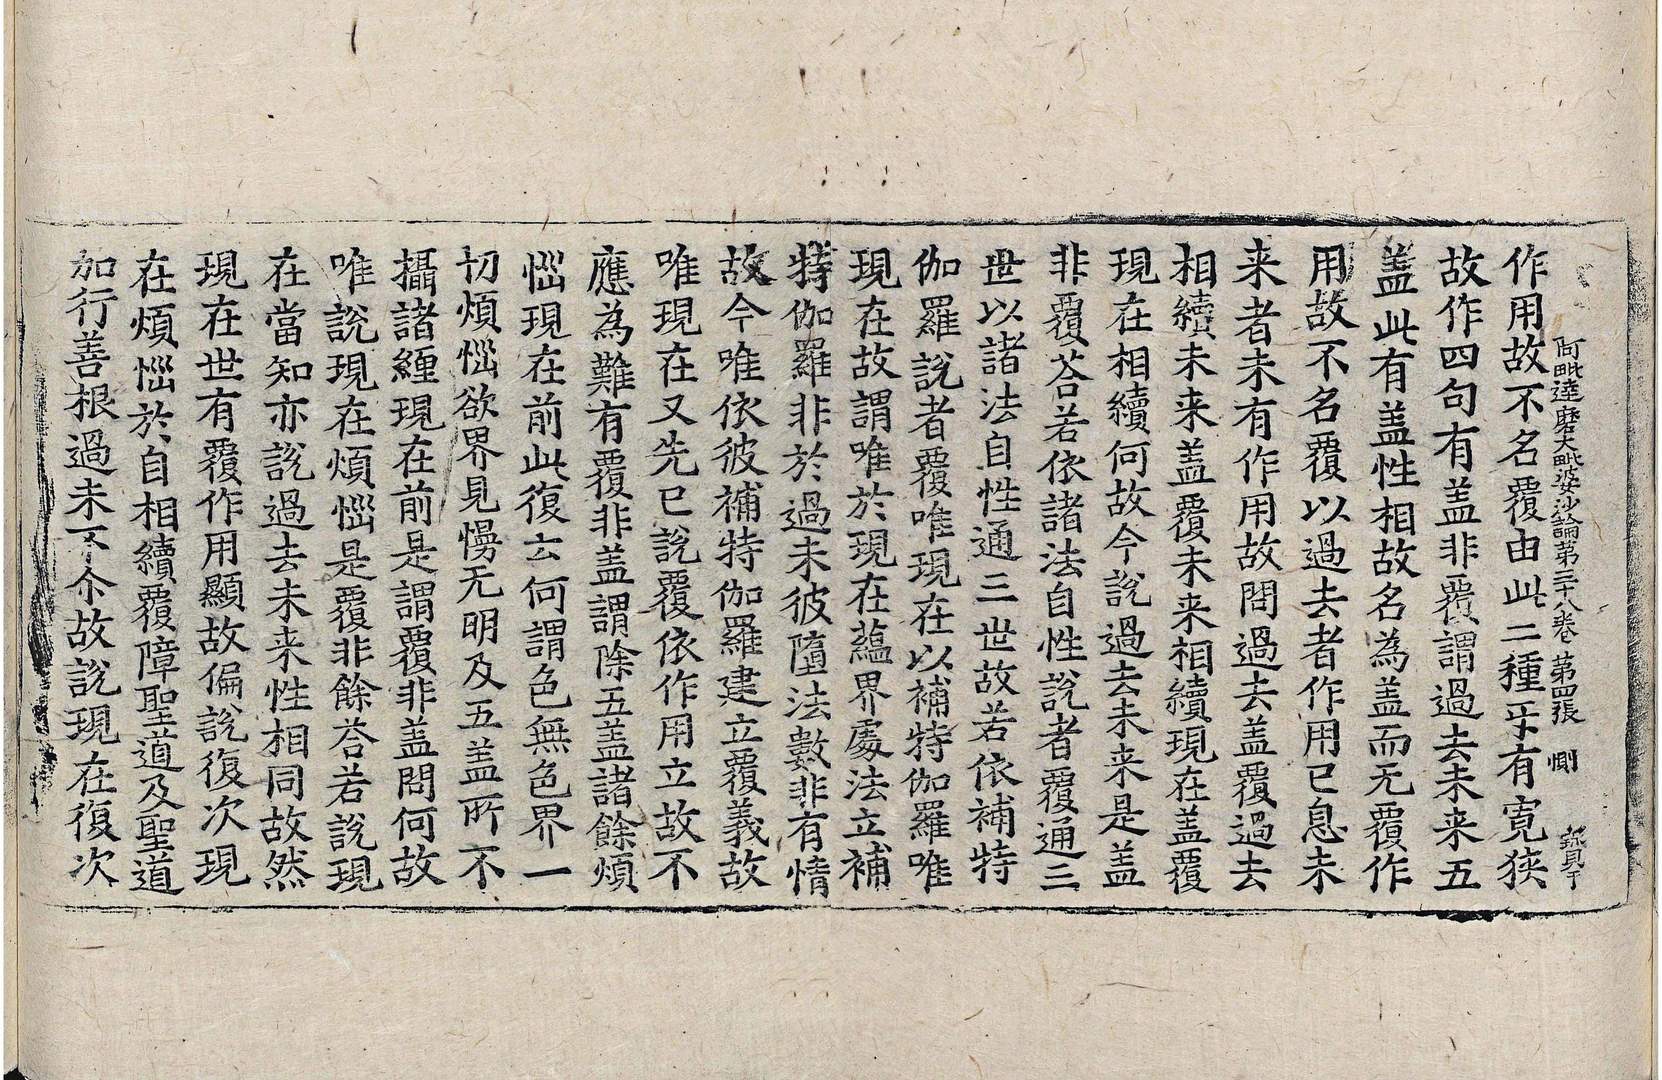 阿毗達磨大毗婆沙論第三十八卷 第四張 惻
作用故不名覆由此二種㸦有寬狹
故作四句有盖非覆謂過去未来五
盖此有盖性相故名為盖而无覆作
用故不名覆以過去者作用已息未
来者未有作用故問過去盖覆過去
相續未来盖覆未来相續現在盖覆
現在相續何故今說過去未来是盖
非覆荅若依諸法自性說者覆通三
世以諸法自性通三世故若依補特
伽羅說者覆唯現在以補特伽羅唯
現在故謂唯於現在蘊界處法立補
特伽羅非於過未彼墮法數非有情
故今唯依彼補特伽羅建立覆義故
唯現在又先已說覆依作用立故不
應為難有覆非盖謂除五盖諸餘煩
惱現在前此復云何謂色無色界一
切煩惱欲界見慢无明及五盖所不
攝諸纏現在前是謂覆非盖問何故
唯說現在煩惱是覆非餘荅若說現
在當知亦說過去未来性相同故然
現在世有覆作用顯故偏說復次現
在煩惱於自相續覆障聖道及聖道
加行善根過未不尒故說現在復次